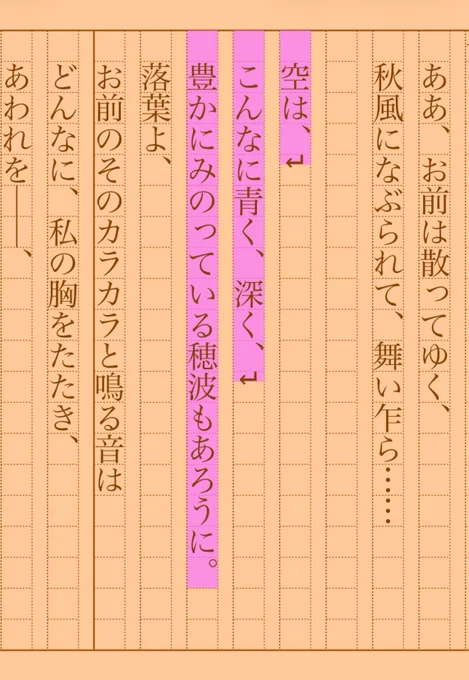 ああ、お前は散ってゆく、
秋風になぶられて、舞い乍ら……
空は、↵
こんなに青く、深く、↵
豊かにみのっている穂波もあろうに。
落葉よ、
お前のそのカラカラと鳴る音は
どんなに、私の胸をたたき、
あわれを――、